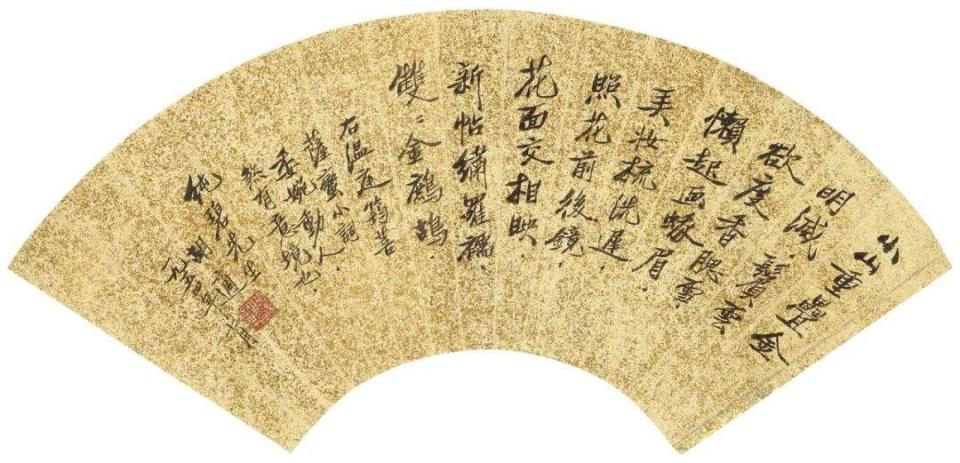 小山重疊金
明滅．鬢雲
欲度香腮雪
懶起画蛾眉．
弄妝梳洗遲
照花前後鏡．
花面交相映．
新帖繡羅襦．
雙〻金鷓鴣．
右溫庭筠菩
薩蠻小詞
委婉動人．
然有也．
碧先生
胡適